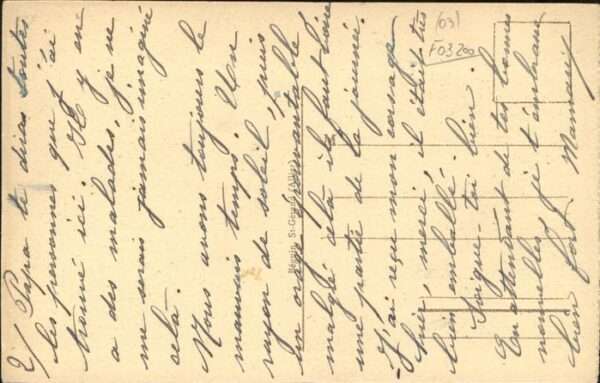 2/ Papa te diras toutes
les personnes que j'ai
trouvé ici. Il y en
a des malades, je ne
me serais jamais imaginé
celà.
Nous avons toujours le
mauvais temps. Un
rayon de soleil, puis
un orage épouvantable
malgré celà il faut boire
une partie de la journée.
J'ai reçu mon corsage
hier, merci, il était très
bien emballé.
Soigne-toi bien.
En attendant de tes bonnes
nouvelles je t'embrasse
bien fort Maman
St-Gérand (Allier)
103
F03200